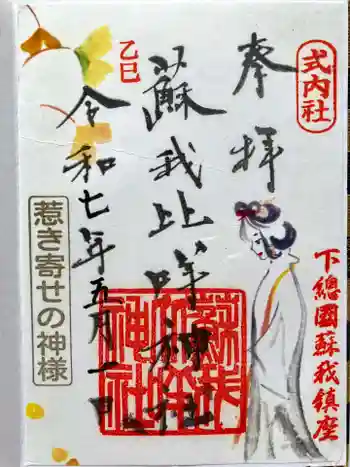 式内社
奉拝
下總國蘇我鎮座
蘇我比咩神社
乙巳
令和七年五月一日
惹き寄せの神様
蘇我比咩神社